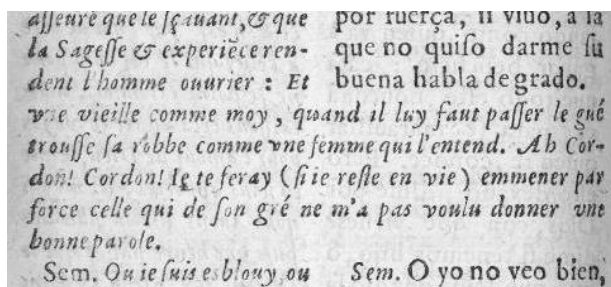 aſſeuré que le ſçauant, & que
la Sageſſe & experiēce ren-
dent l'homme ouurier : Et
por fuerça, ſi viuo, a la
que no quiſo darme ſu
buena habla de grado.
vne vieille comme moy, quand il luy faut paſſer le gué
trouſſe ſa robbe comme vne femme qui l'entend. Ah Cor-
don! Cordon! Ie te feray (ſi ie reſte en vie) emmener par
force celle qui de ſon gré ne m'a pas voulu donner vne
bonne parole.
Sem. Ou ie ſuis esblouy, ou
Sem. O yo no veo bien,